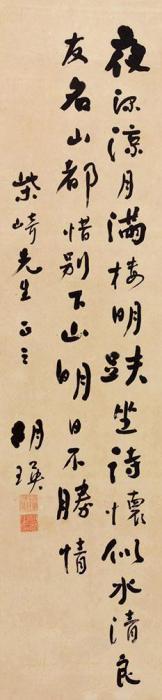 夜深涼月滿樓明趺坐詩懷似水清良
友名山都惜别下山明日不勝情
柴崎先生正之
胡瑛